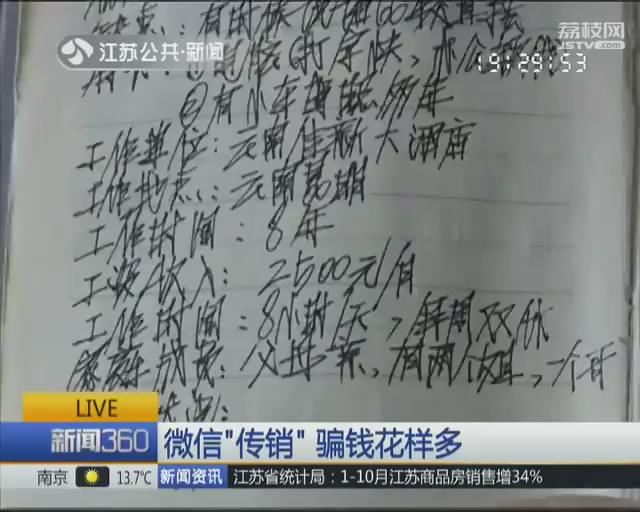 江苏公共·新闻
荔枝网
JSTV.com
19:29:53
有时候说话比较直接
打字快，办公软件
②有小车驾照多年
工作单位：云南佳新大酒店
工作地点：云南昆明
工作时间：8年
工资收入：2500元/月
工作时间：8小时/天，每周双休
家庭成员：父母亲，有两个姐，一个哥
LIVE
新闻360
微信"传销" 骗钱花样多
南京 13.7℃ 新闻资讯 江苏省统计局：1-10月江苏商品房销售增34%